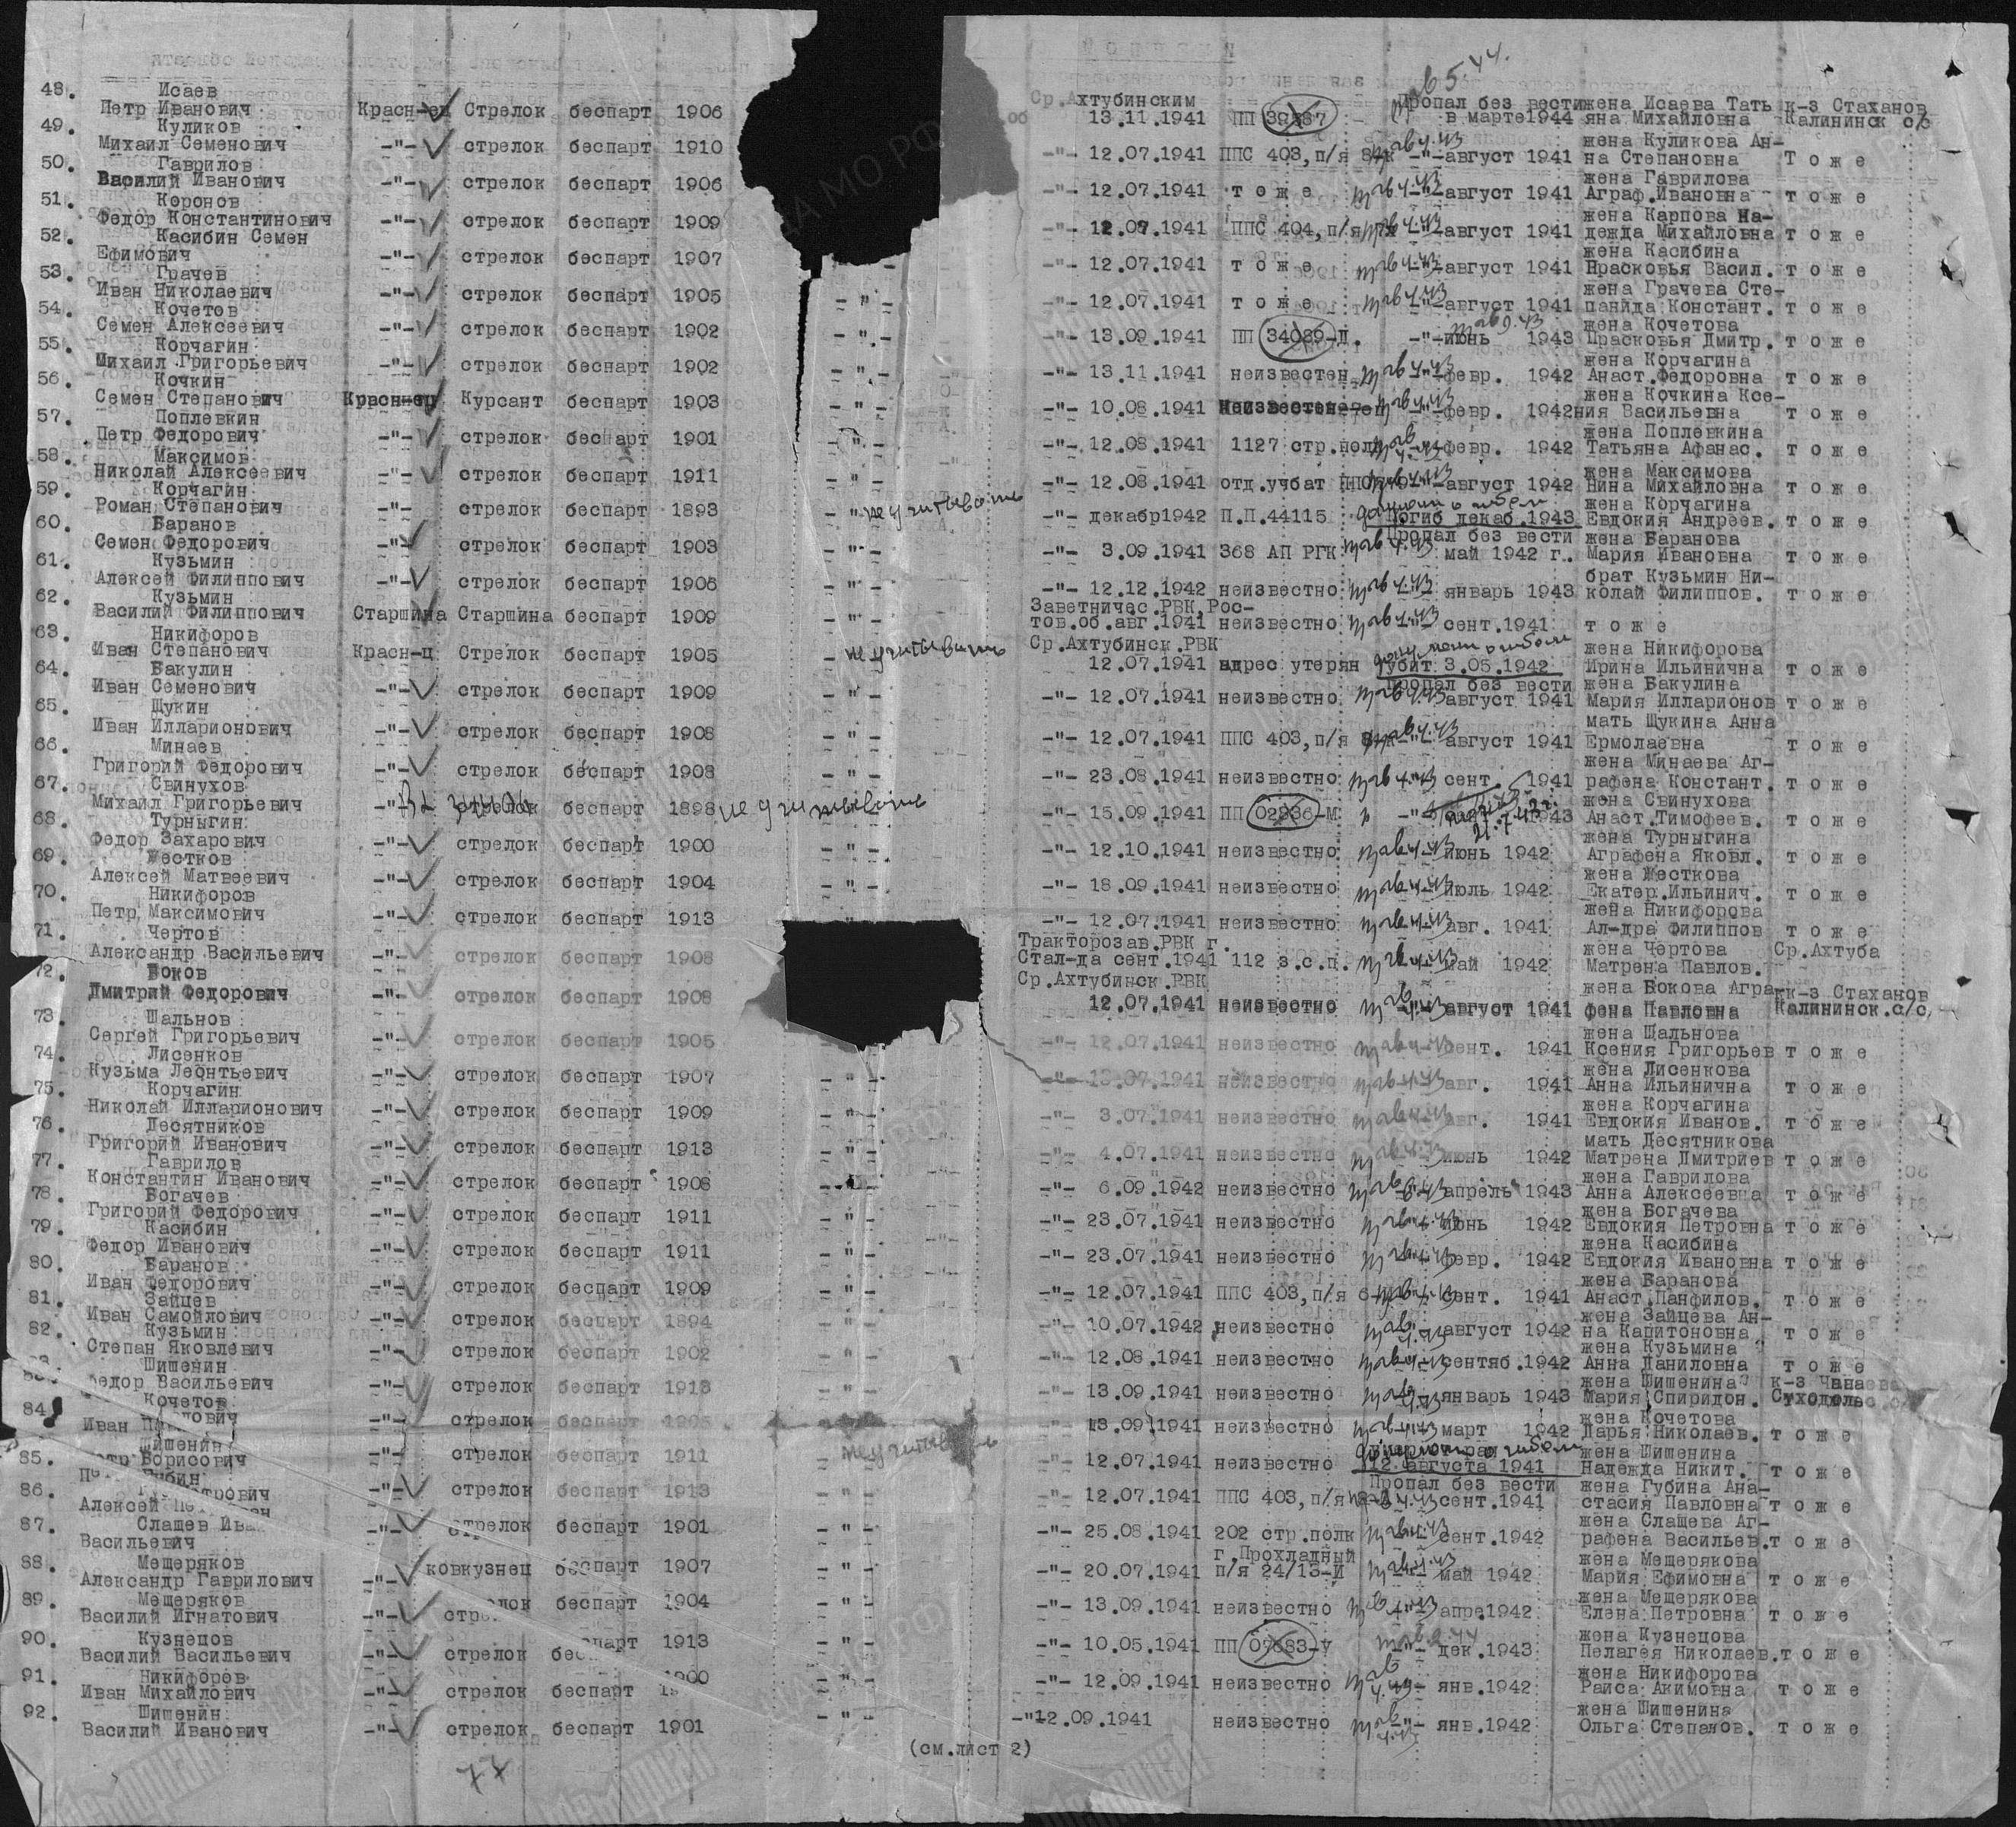 48. Исаев Петр Иванович Красн-ец Стрелок беспарт 1906 Ср.Ахтубинским 13.11.1941 ПП Пропал без вести в марте 1944 жена Исаева Татьяна Михайловна к-з Стаханов Калининск с/с
49. Куликов Михаил Семенович -"- стрелок беспарт 1910 -"- 12.07.1941 ППС 403, п/я -"- август 1941 жена Куликова Анна Степановна Т о ж е
50. Гаврилов Василий Иванович -"- стрелок беспарт 1906 -"- 12.07.1941 т о ж е -"- август 1941 жена Гаврилова Аграф.Ивановна т о ж е
51. Федор Константинович -"- стрелок беспарт 1909 -"- 12.07.1941 ППС 404, п/я август 1941 жена Карпова Надежда Михайловна т о ж е
52. Касибин Семен Ефимович -"- стрелок беспарт 1907 -"- 12.07.1941 т о ж е август 1941 жена Касибина Прасковья Васил. т о ж е
53. Грачев Иван Николаевич -"- стрелок беспарт 1905 - " - -"- 12.07.1941 т о ж е август 1941 жена Грачева Степанида Констант. т о ж е
54. Кочетов Семен Алексеевич -"- стрелок беспарт 1902 - " - -"- 13.09.1941 ПП -"- июнь 1943 жена Кочетова Прасковья Дмитр. т о ж е
55. Корчагин Михаил Григорьевич -"- стрелок беспарт 1902 - " - -"- 13.11.1941 неизвестен февр. 1942 жена Корчагина Анаст.Федоровна т о ж е
56. Кочкин Семен Степанович Курсант беспарт 1903 - " - -"- 10.08.1941 Неизвестен февр. 1942 жена Кочкина Ксения Васильевна т о ж е
57. Поплевкин Петр Федорович -"- стрелок беспарт 1901 - " - -"- 12.08.1941 1127 стр.полк февр. 1942 жена Поплевкина Татьяна Афанас. т о ж е
58. Максимов Николай Алексеевич -"- стрелок беспарт 1911 - " - -"- 12.08.1941 отд.учбат август 1942 жена Максимова Нина Михайловна т о ж е
59. Корчагин Роман Степанович -"- стрелок беспарт 1893 - " - не учитывать -"- декабр1942 П.П.44115 Погиб декаб.1943 жена Корчагина Евдокия Андреев. т о ж е
60. Баранов Семен Федорович -"- стрелок беспарт 1903 - " - -"- 3.09.1941 368 АП РГК Пропал без вести май 1942 г. жена Баранова Мария Ивановна т о ж е
61. Кузьмин Алексей Филиппович -"- стрелок беспарт 1906 - " - -"- 12.12.1942 неизвестно январь 1943 брат Кузьмин Николай Филиппов. т о ж е
62. Кузьмин Василий Филиппович Старшина Старшина беспарт 1909 - " - Заветничес.РВК,Ростов.об.авг.1941 неизвестно сент.1941 т о ж е
63. Никифоров Иван Степанович Красн-ц Стрелок беспарт 1905 не учитывать Ср.Ахтубинск.РВК 12.07.1941 адрес утерян убит 3.05.1942 жена Никифорова Ирина Ильинична т о ж е
64. Бакулин Иван Семенович -"- стрелок беспарт 1909 - " - -"- 12.07.1941 неизвестно Пропал без вести август 1941 жена Бакулина Мария Илларионов т о ж е
65. Щукин Иван Илларионович -"- стрелок беспарт 1908 - " - -"- 12.07.1941 ППС 403, п/я август 1941 мать Щукина Анна Ермолаевна т о ж е
66. Минаев Григорий Федорович -"- стрелок беспарт 1908 - " - -"- 23.08.1941 неизвестно сент. 1941 жена Минаева Аграфена Констант. т о ж е
67. Свинухов Михаил Григорьевич -"- стрелок беспарт 1898 не учитывать -"- 15.09.1941 ПП 1943 жена Свинухова Анаст.Тимофеев. т о ж е
68. Турныгин Федор Захарович -"- стрелок беспарт 1900 - " - -"- 12.10.1941 неизвестно июнь 1942 жена Турныгина Аграфена Яковл. т о ж е
69. Жестков Алексей Матвеевич -"- стрелок беспарт 1904 - " - -"- 18.09.1941 неизвестно июль 1942 жена Жесткова Екатер.Ильинич. т о ж е
70. Никифоров Петр Максимович -"- стрелок беспарт 1913 -"- 12.07.1941 неизвестно авг. 1941 жена Никифорова Ал-дра Филиппов т о ж е
71. Чертов Александр Васильевич -"- стрелок беспарт 1908 Тракторозав.РВК г. Стал-да сент.1941 112 з.с.п. май 1942 жена Чертова Матрена Павлов. Ср.Ахтуба
72. Боков Дмитрий Федорович -"- стрелок беспарт 1908 Ср.Ахтубинск.РВК 12.07.1941 неизвестно август 1941 жена Бокова Аграфена Павловна к-з Стаханов Калининск.с/с
73. Шальнов Сергей Григорьевич -"- стрелок беспарт 1905 -"- 12.07.1941 неизвестно сент. 1941 жена Шальнова Ксения Григорьев т о ж е
74. Лисенков Кузьма Леонтьевич -"- стрелок беспарт 1907 - " - неизвестно авг. 1941 жена Лисенкова Анна Ильинична т о ж е
75. Корчагин Николай Илларионович -"- стрелок беспарт 1909 - " - -"- 3.07.1941 неизвестно авг. 1941 жена Корчагина Евдокия Иванов. т о ж е
76. Десятников Григорий Иванович -"- стрелок беспарт 1913 - " - -"- 4.07.1941 неизвестно июнь 1942 мать Десятникова Матрена Дмитриев т о ж е
77. Гаврилов Константин Иванович -"- стрелок беспарт 1908 -"- 6.09.1942 неизвестно апрель 1943 жена Гаврилова Анна Алексеевна т о ж е
78. Богачев Григорий Федорович -"- стрелок беспарт 1911 - " - -"- 23.07.1941 неизвестно июнь 1942 жена Богачева Евдокия Петровна т о ж е
79. Касибин Федор Иванович -"- стрелок беспарт 1911 - " - -"- 23.07.1941 неизвестно февр. 1942 жена Касибина Евдокия Ивановна т о ж е
80. Баранов Иван Федорович -"- стрелок беспарт 1909 - " - -"- 12.07.1941 ППС 403, п/я сент. 1941 жена Баранова Анаст.Панфилов. т о ж е
81. Зайцев Иван Самойлович -"- стрелок беспарт 1894 - " - -"- 10.07.1942 неизвестно август 1942 жена Зайцева Анна Капитоновна т о ж е
82. Кузьмин Степан Яковлевич -"- стрелок беспарт 1902 - " - -"- 12.08.1941 неизвестно сентяб.1942 жена Кузьмина Анна Даниловна т о ж е
Шишенин Федор Васильевич -"- стрелок беспарт 1913 - " - -"- 13.09.1941 неизвестно январь 1943 жена Шишенина Мария Спиридон. к-з Чапаева
84. Кочетов Иван -"- стрелок беспарт -"- 13.09.1941 неизвестно март 1942 жена Кочетова Дарья Николаев. т о ж е
85. Шишенин Петр Борисович -"- стрелок беспарт 1911 не учитывать -"- 12.07.1941 неизвестно 12 августа 1941 жена Шишенина Надежда Никит. т о ж е
86. Губин Алексей -"- стрелок беспарт 1913 - " - -"- 12.07.1941 ППС 403, п/я Пропал без вести сент.1941 жена Губина Анастасия Павловна т о ж е
87. Слащев Иван Васильевич -"- стрелок беспарт 1901 - " - -"- 25.08.1941 202 стр.полк сент.1942 жена Слащева Аграфена Васильев. т о ж е
88. Мещеряков Александр Гаврилович -"- ковкузнец беспарт 1907 - " - -"- 20.07.1941 г.Прохладный п/я 24/13-И май 1942 жена Мещерякова Мария Ефимовна т о ж е
89. Мещеряков Василий Игнатович -"- стрелок беспарт 1904 - " - -"- 13.09.1941 неизвестно апре.1942 жена Мещерякова Елена Петровна т о ж е
90. Кузнецов Василий Васильевич -"- стрелок беспарт 1913 - " - -"- 10.05.1941 ПП дек.1943 жена Кузнецова Пелагея Николаев. т о ж е
91. Никифоров Иван Михайлович -"- стрелок беспарт 1900 - " - -"- 12.09.1941 неизвестно янв.1942 жена Никифорова Раиса Акимовна т о ж е
92. Шишенин Василий Иванович -"- стрелок беспарт 1901 - " - -"- 12.09.1941 неизвестно -"- янв.1942 жена Шишенина Ольга Степанов. т о ж е
(см.лист 2)
77